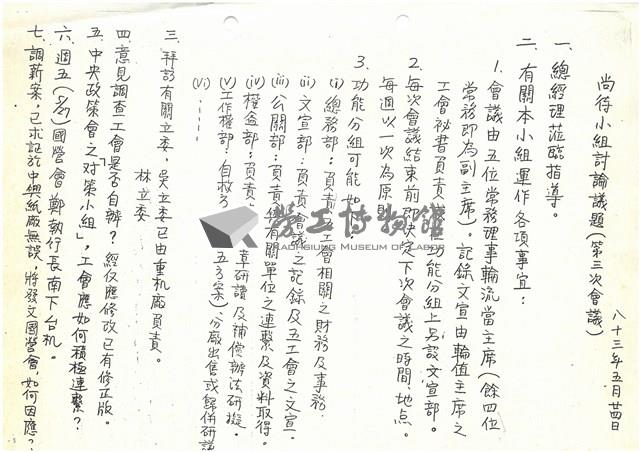 尚待小組討論議題(第三次會議)
八十三年五月廿四日
一、總經理蒞臨指導。
二、有關本小組運作各項事宜:
1. 會議由五位常務理事輪流當主席(餘四位
常務即為副主席)。記錄文宣由輪值主席之
工會秘書負責 功能分組上另設文宣部。
2. 每次會議結束前即決定下次會議之時間、地點。
每週以一次為原則
3. 功能分組可能如
(i) 總務部:負責五工會相關之財務及事務.
(ii) 文宣部:負責會議之記錄及五工會之文宣.
(iii) 公關部:負責 有關單位之連繫及資料取得。
(iv) 權益部:負責 章研讀及補償辦法研擬.
(v) 工作權部:自救方 五方案)、分廠出售或歸併研議
(vi) ……
三、拜訪有關立委,吳立委已由重機廠負責。
林立委
四、意見調查工會是否自辦? 經仅應修改已有修正版。
五、中央政策會之「對策小組」,工會應如何積極連繫?
六、週五(5/27)國營會鄭執行長南下台机。
七、調薪案,已求証於中興紙廠無誤,將發文國營會,如何因應?
勞工博物館
KAOHSIUNG MUSEUM OF LABOR